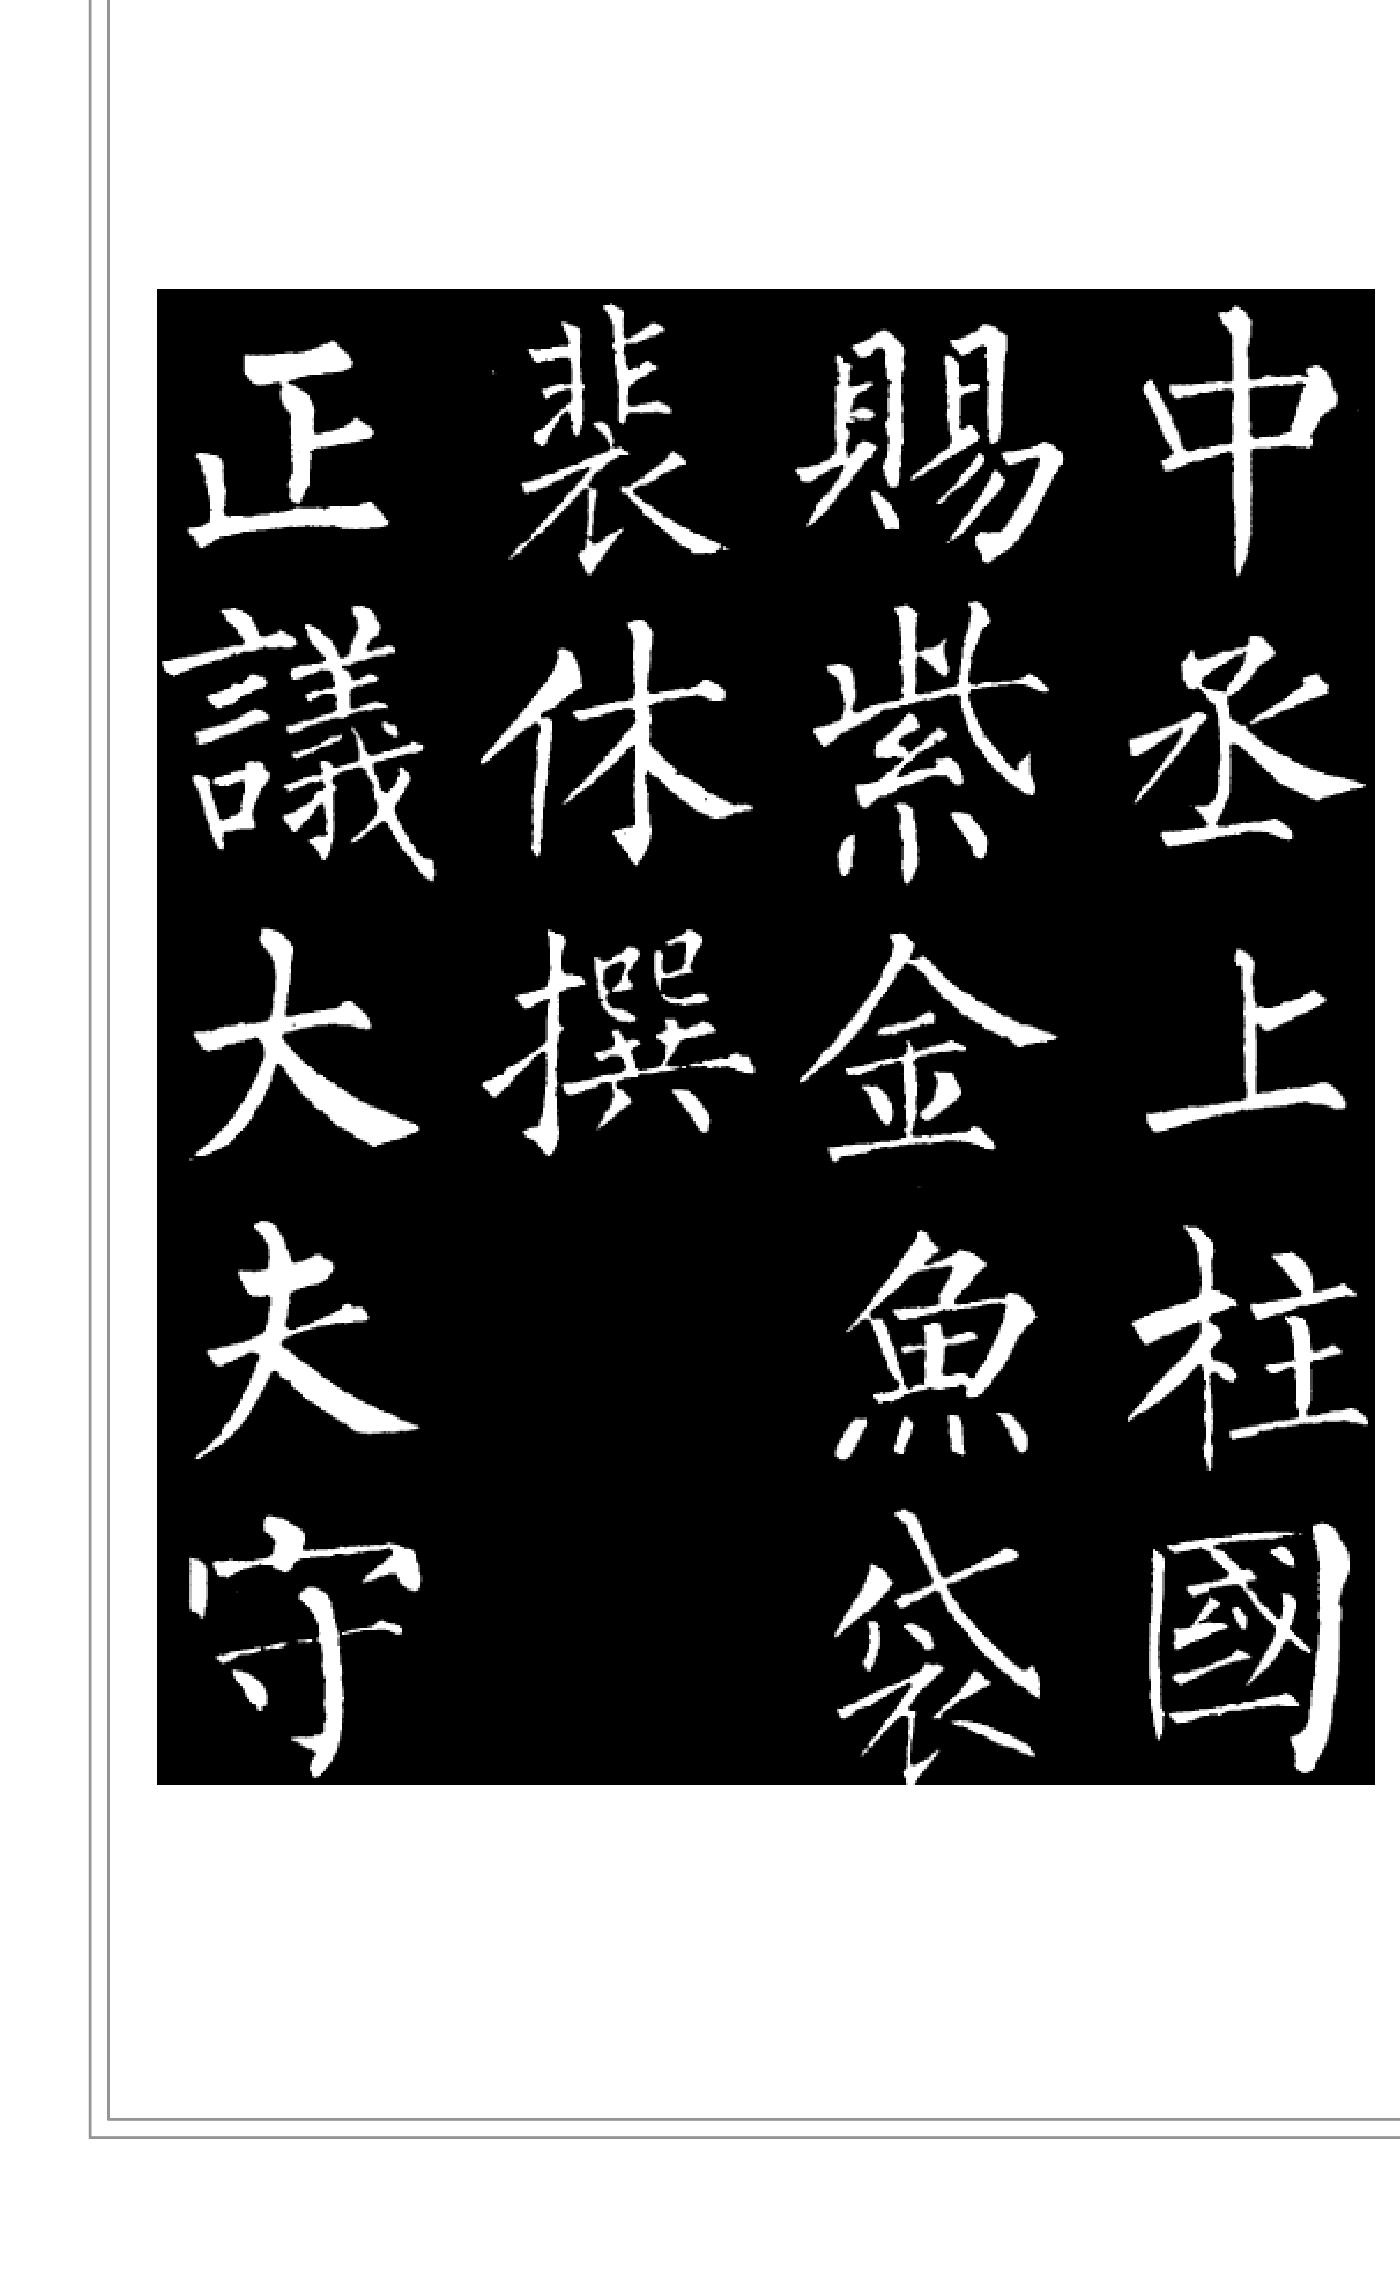 中丞上柱國
賜紫金魚袋
裴休撰
正議大夫守